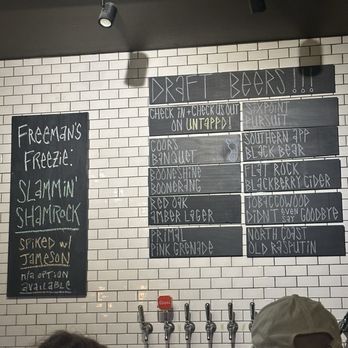 FREEMAN'S
FREEZIE:
SLAMMIN'
SHAMROCK
SPIKED W/
JAMESON
N/A OPTION
AVAILABLE
DRAFT BEERS!!!
CHECK IN + CHECK US OUT
ON UNTAPPD!
COORS
BANQUET
BOONESHINE
BOONERANG
RED OAK
AMBER LAGER
PRIMAL
PINK GRENADE
SIXPOINT
PURSUIT
SOUTHERN APP
BLACK BEAR
FLAT ROCK
BLACKBERRY CIDER
TOBACCOWOOD
DIDN'T EVEN SAY GOODBYE
NORTH COAST
OLD RASPUTIN